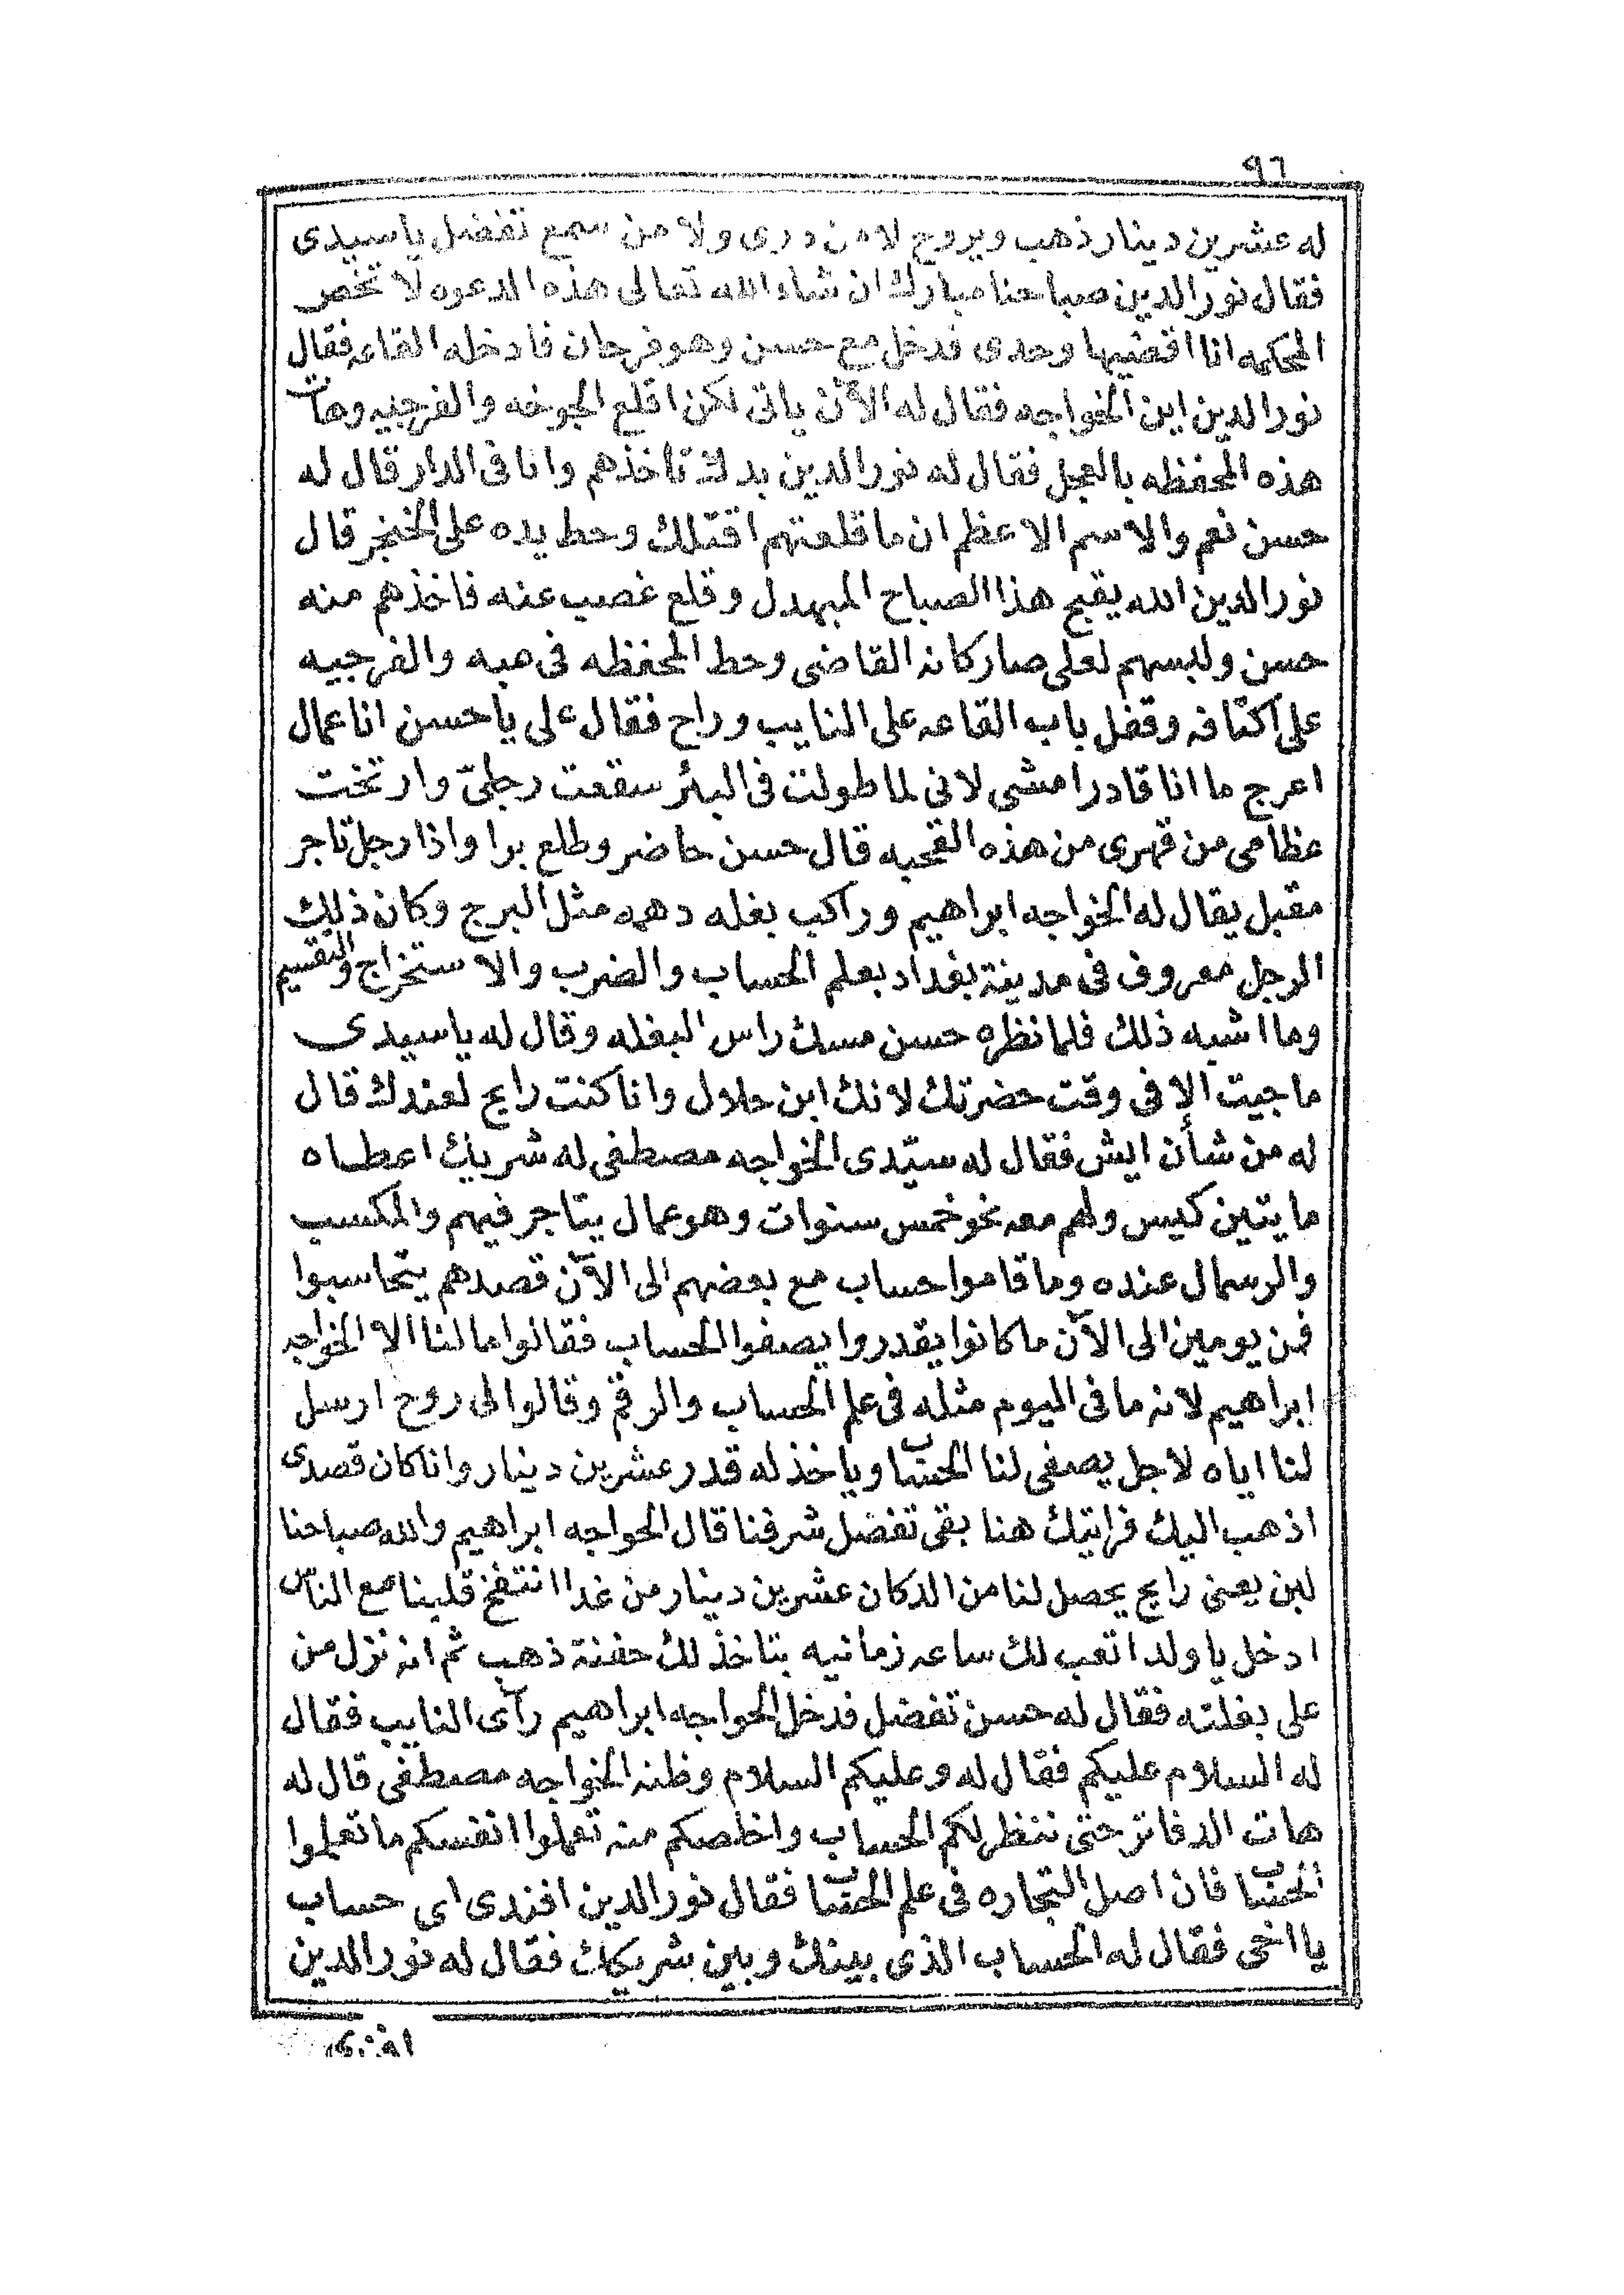 ٩٦
له عشرين دينار ذهب ويروح لا من درى ولا من سمع تفضل يا سيدى
فقال نور الدين صباحنا مبارك ان شاء الله تعالى هذه الدعوه لا تخص
المحكمه انا اقضيها وحدى فدخل مع حسن وهو فرحان فادخله القاعه فقال
نور الدين اين الخواجه فقال له الآن ياتى لكن اقلع الجوخه والفرجيه وهات
هذه المحفظه بالعجل فقال له نور الدين بدك تاخذهم وانا فى الدار قال له
حسن نعم والاسم الاعظم ان ما قلعتهم اقتلك وحط يده على الخنجر قال
نور الدين الله يقبح هذا الصباح المبهدل وقلع غصب عنه فاخذهم منه
حسن ولبسهم لعلى صار كانه القاضى وحط المحفظه فى عبه والفرجيه
على اكتافه وقفل باب القاعه على النايب وراح فقال على يا حسن انا عمال
اعرج ما انا قادر امشى لانى لما طولت فى البئر سقعت رجلىّ وارتخت
عظامى من قهرى من هذه القحبه قال حسن حاضر وطلع برا واذا رجل تاجر
مقبل يقال له الخواجه ابراهيم وراكب بغله دهمه مثل البرج وكان ذلك
الرجل معروف فى مدينة بغداد بعلم الحساب والضرب والاستخراج والتقسيم
وما اشبه ذلك فلما نظره حسن مسك راس البغله وقال له يا سيدى
ما جيت الا فى وقت حضرتك لانك ابن حلال وانا كنت رايح لعندك قال
له من شأن ايش فقال له سيّدى الخواجه مصطفى له شريك اعطاه
مايتين كيس ولهم معه نحو خمس سنوات وهو عمال يتاجر فيهم والمكسب
والرسمال عنده وما قاموا حساب مع بعضهم الى الآن قصدهم يتحاسبوا
فمن يومين الى الآن ما كانوا يقدروا يصفوا الحساب فقالوا ما لنا الا الخواجه
ابراهيم لانه ما فى اليوم مثله فى علم الحساب والرقم وقالوا لى روح ارسل
لنا اياه لاجل يصفى لنا الحساب وياخذ له قدر عشرين دينار وانا كان قصدى
اذهب اليك فرايتك هنا بقى تفضل شرفنا قال الخواجه ابراهيم والله صباحنا
لبن يعنى رايح يحصل لنا من الدكان عشرين دينار من غدا انتفخ قلبنا مع الناس
ادخل يا ولد اتعب لك ساعه زمانيه بتاخذ لك حفنة ذهب ثم انه نزل من
على بغلته فقال له حسن تفضل فدخل الخواجه ابراهيم رآى النايب فقال
له السلام عليكم فقال له وعليكم السلام وظنه الخواجه مصطفى قال له
هات الدفاتر حتى ننظر لكم الحساب واخلصكم منه تعملوا انفسكم ما تعلموا
الحساب فان اصل التجاره فى علم الحساب فقال نور الدين افندى اى حساب
يا اخى فقال له الحساب الذى بينك وبين شريكك فقال له نور الدين
افندى